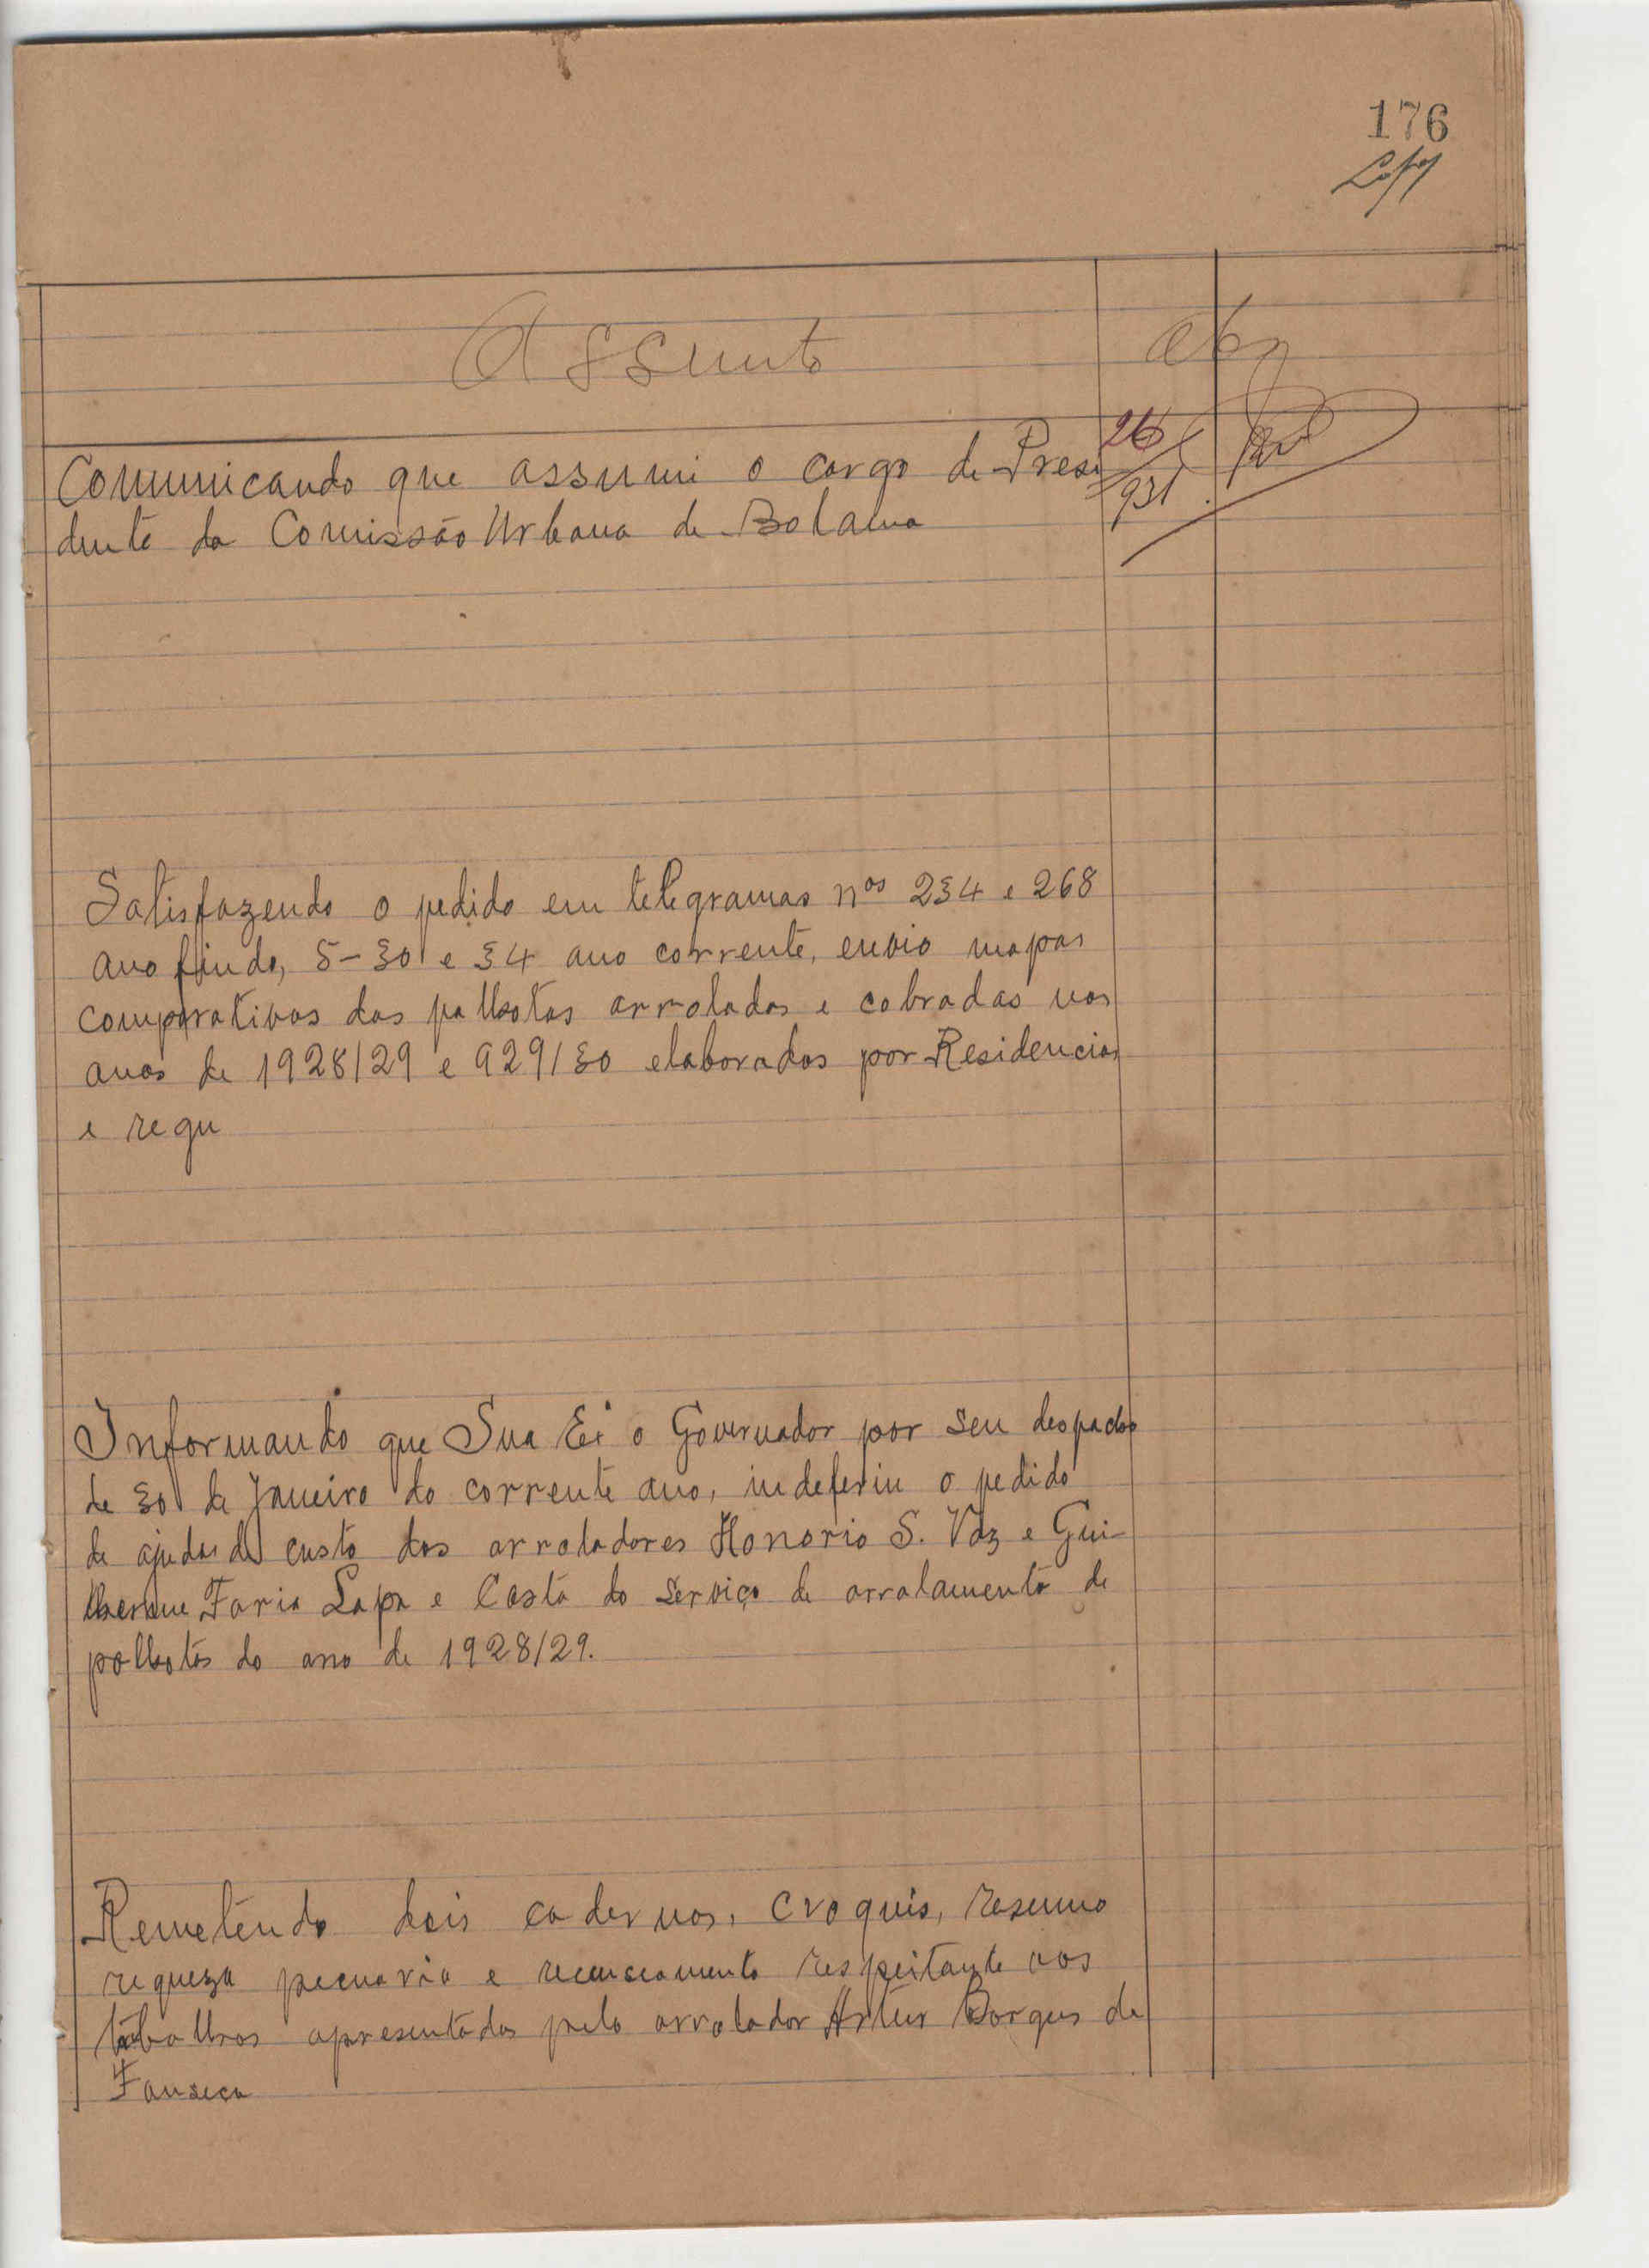 176
Assunto
Comunicando que assumi o cargo de Presi
26
931
dente da Comissão Urbana de Bolama
Satisfazendo o pedido em telegramas nos 234 e 268
ano findo, 5-30 e 34 ano corrente, envio mapas
comparativos das palhotas arroladas e cobradas nos
anos de 1928/29 e 929/30 elaborados por Residencias
e regu
Informando que Sua Eª o Governador por seu despacho
de 30 de Janeiro do corrente ano, indeferiu o pedido
de ajudas de custo dos arroladores Honorio S. Vaz e Gui-
lherme Faria Lapa e Costa do serviço de arrolamento de
palhotas do ano de 1928/29.
Remetendo dois cadernos, croquis, resumo
riqueza pecuaria e recenseamento respeitante aos
trabalhos apresentados pelo arrolador Artur Borges da
Fonseca